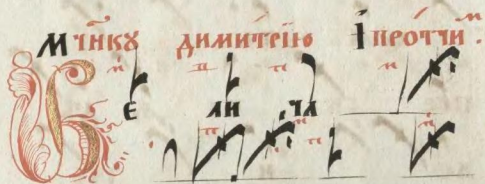 Мчн҃кꙋ димитрїю і протчи .
Ве ли ча